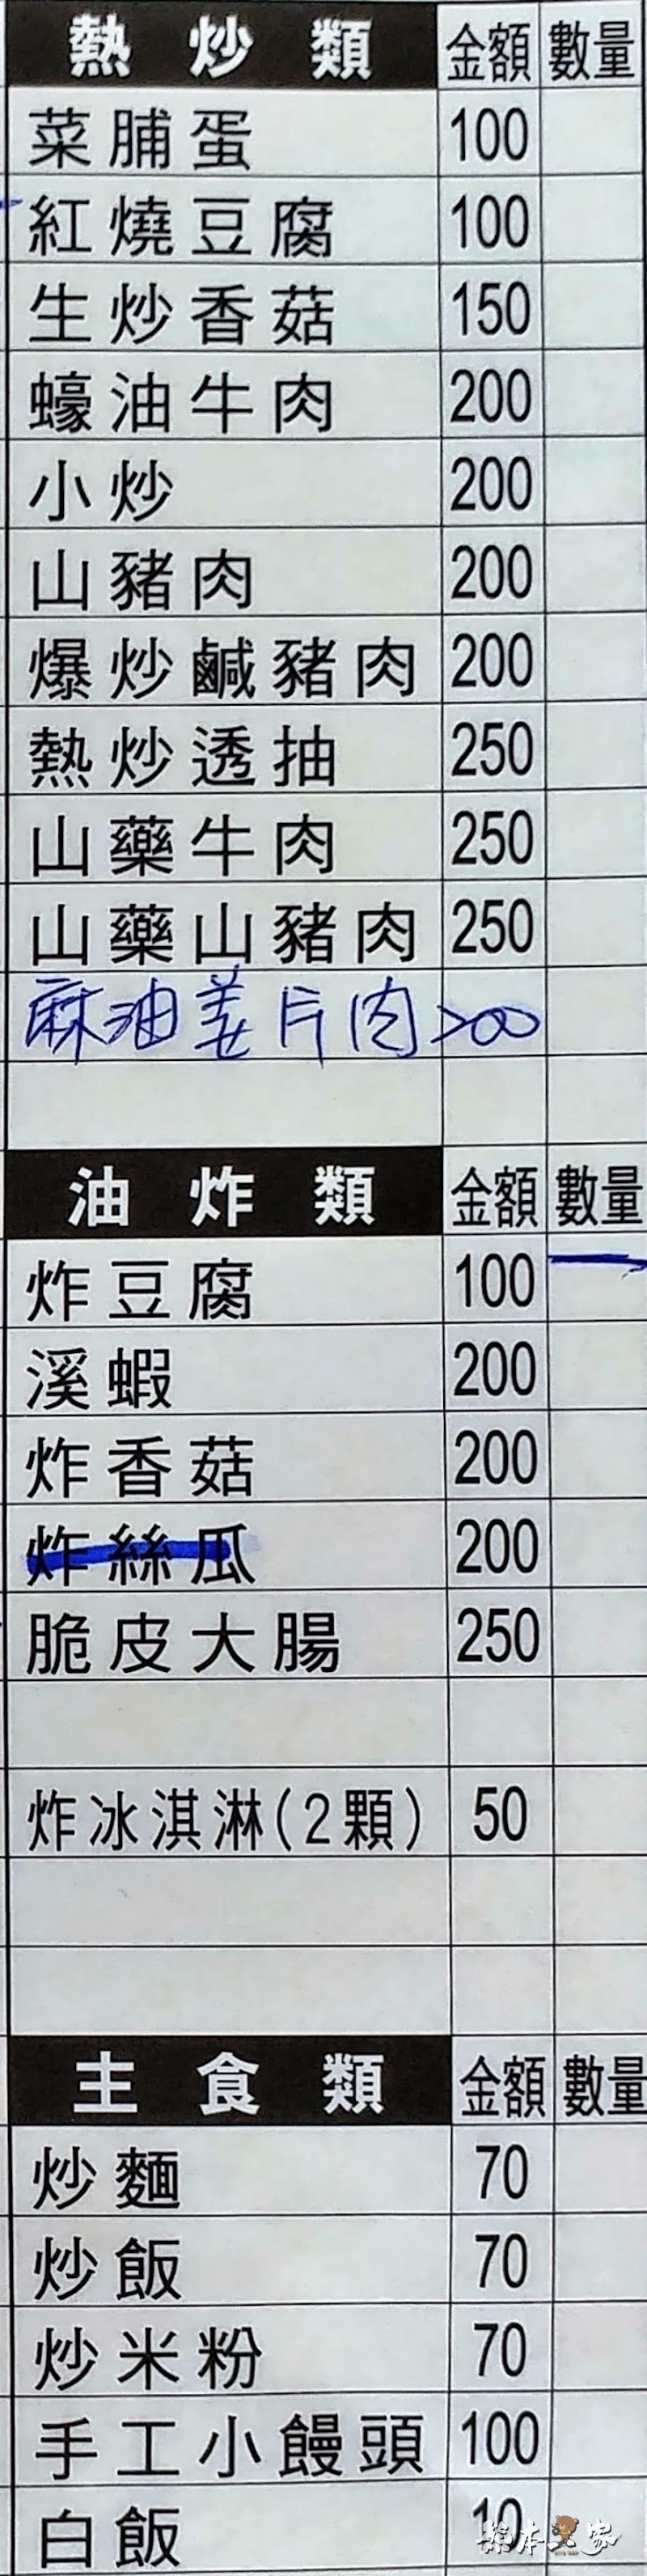 熱炒類 金額 數量
菜脯蛋 100
紅燒豆腐 100
生炒香菇 150
蠔油牛肉 200
小炒 200
山豬肉 200
爆炒鹹豬肉 200
熱炒透抽 250
山藥牛肉 250
山藥山豬肉 250
麻油姜片肉 200
油炸類 金額 數量
炸豆腐 100
溪蝦 200
炸香菇 200
炸絲瓜 200
脆皮大腸 250
炸冰淇淋(2顆) 50
主食類 金額 數量
炒麵 70
炒飯 70
炒米粉 70
手工小饅頭 100
白飯 10
熊本一家